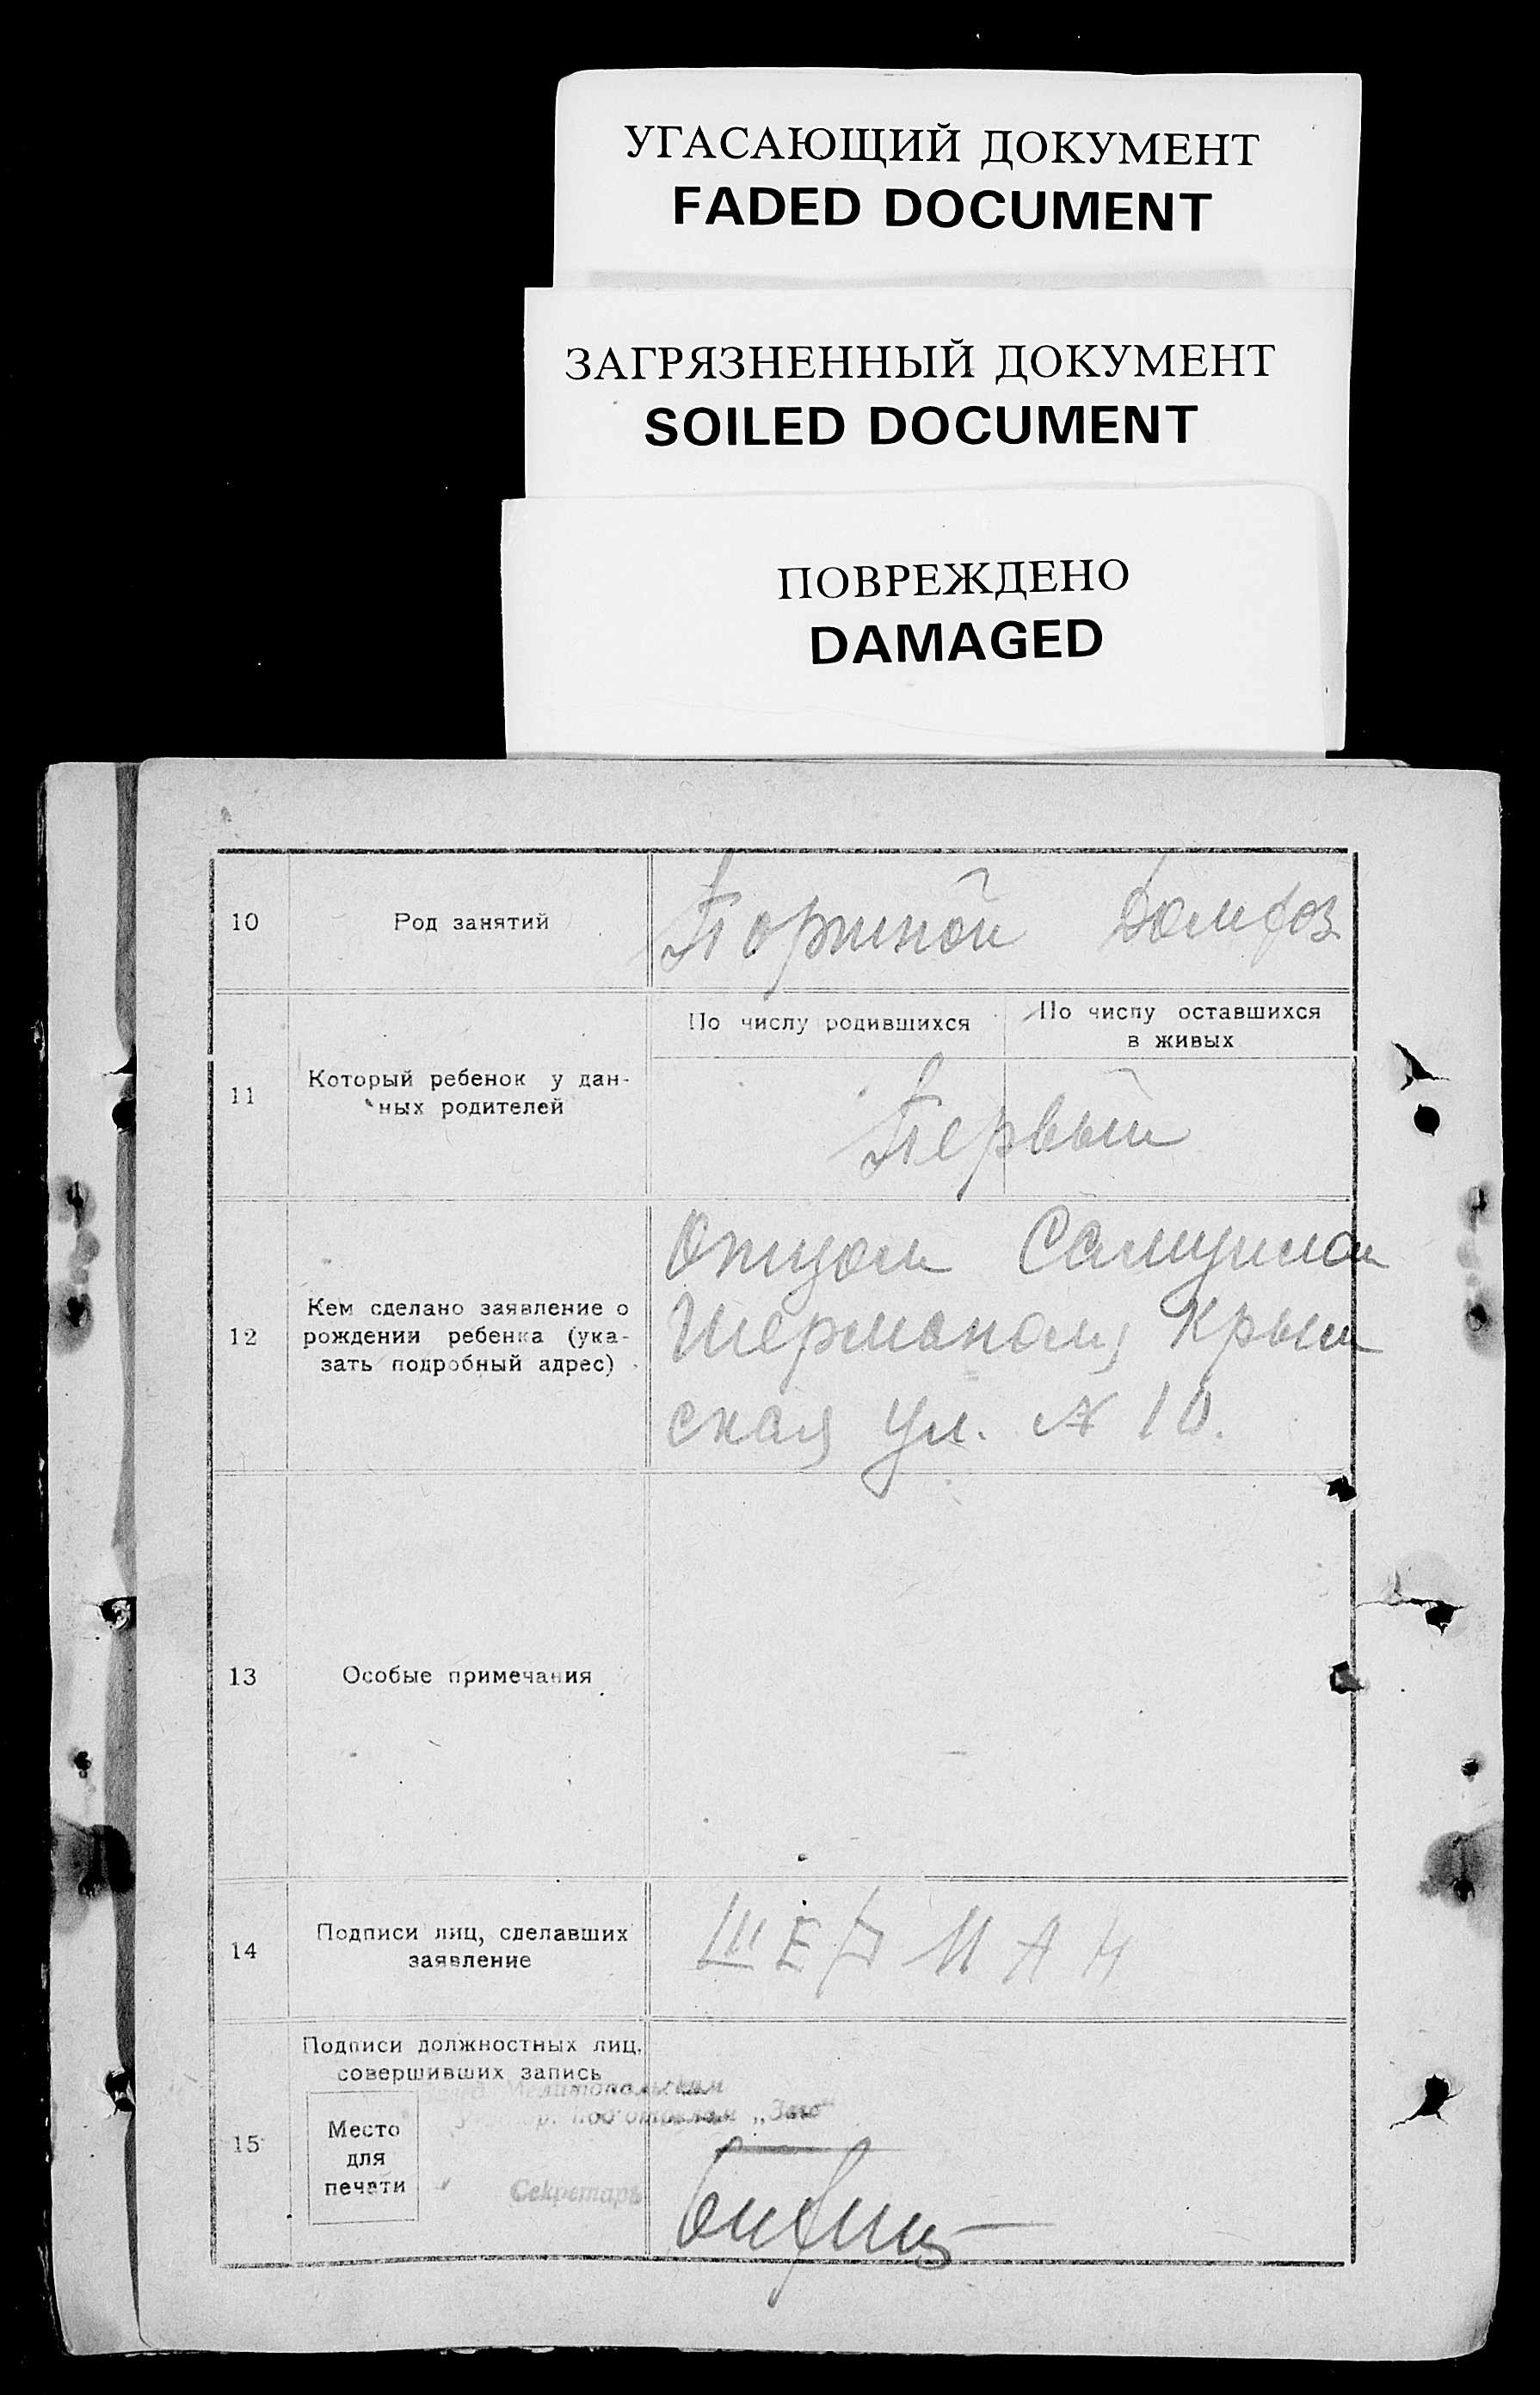 УГАСАЮЩИЙ ДОКУМЕНТ
FADED DOCUMENT
ЗАГРЯЗНЕННЫЙ ДОКУМЕНТ
SOILED DOCUMENT
ПОВРЕЖДЕНО
DAMAGED
10 Род занятий
Портной
11 Который ребенок у дан-
ных родителей
По числу родившихся
По числу оставшихся
в живых
Первый
12 Кем сделано заявление о
рождении ребенка (ука-
зать подробный адрес)
Отцом Самуилом
Шерманом, Крым
ская ул. № 10.
13 Особые примечания
14 Подписи лиц, сделавших
заявление
ШЕРМАН
15 Подписи должностных лиц,
совершивших запись
Мелитопольским
подотделом „Загс“
Место
для
печати
Секретарь